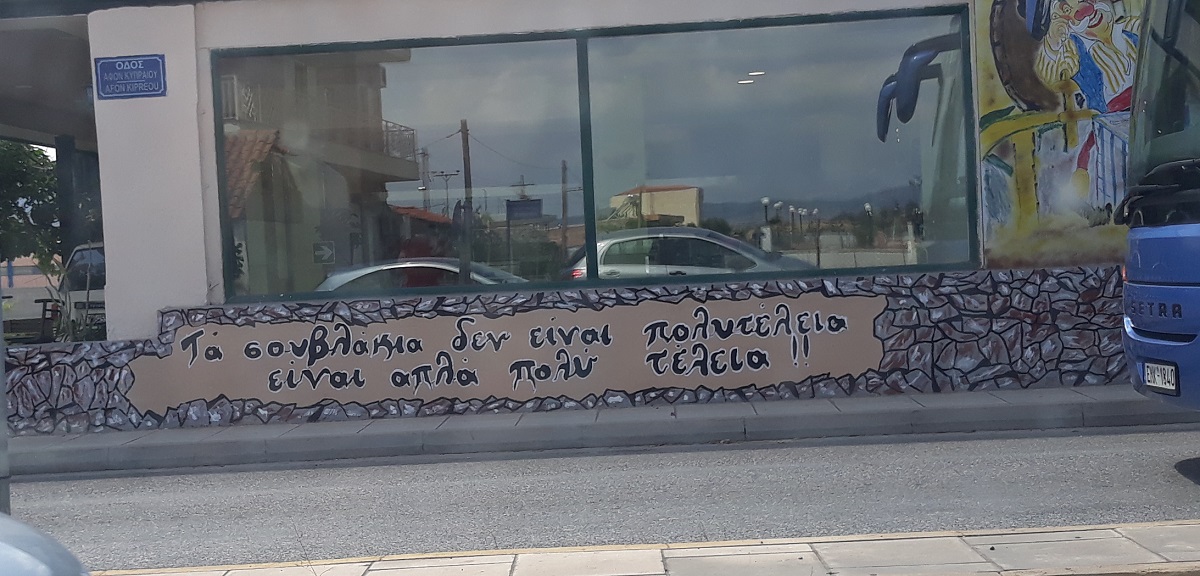 ΟΔΟΣ
ΑΦΩΝ ΚΥΠΡΑΙΟΥ
AFON KIPREOU
Τα σουβλάκια δεν είναι πολυτέλεια
είναι απλά πολύ τέλεια !!
SETRA
ΕΝΚ-1840